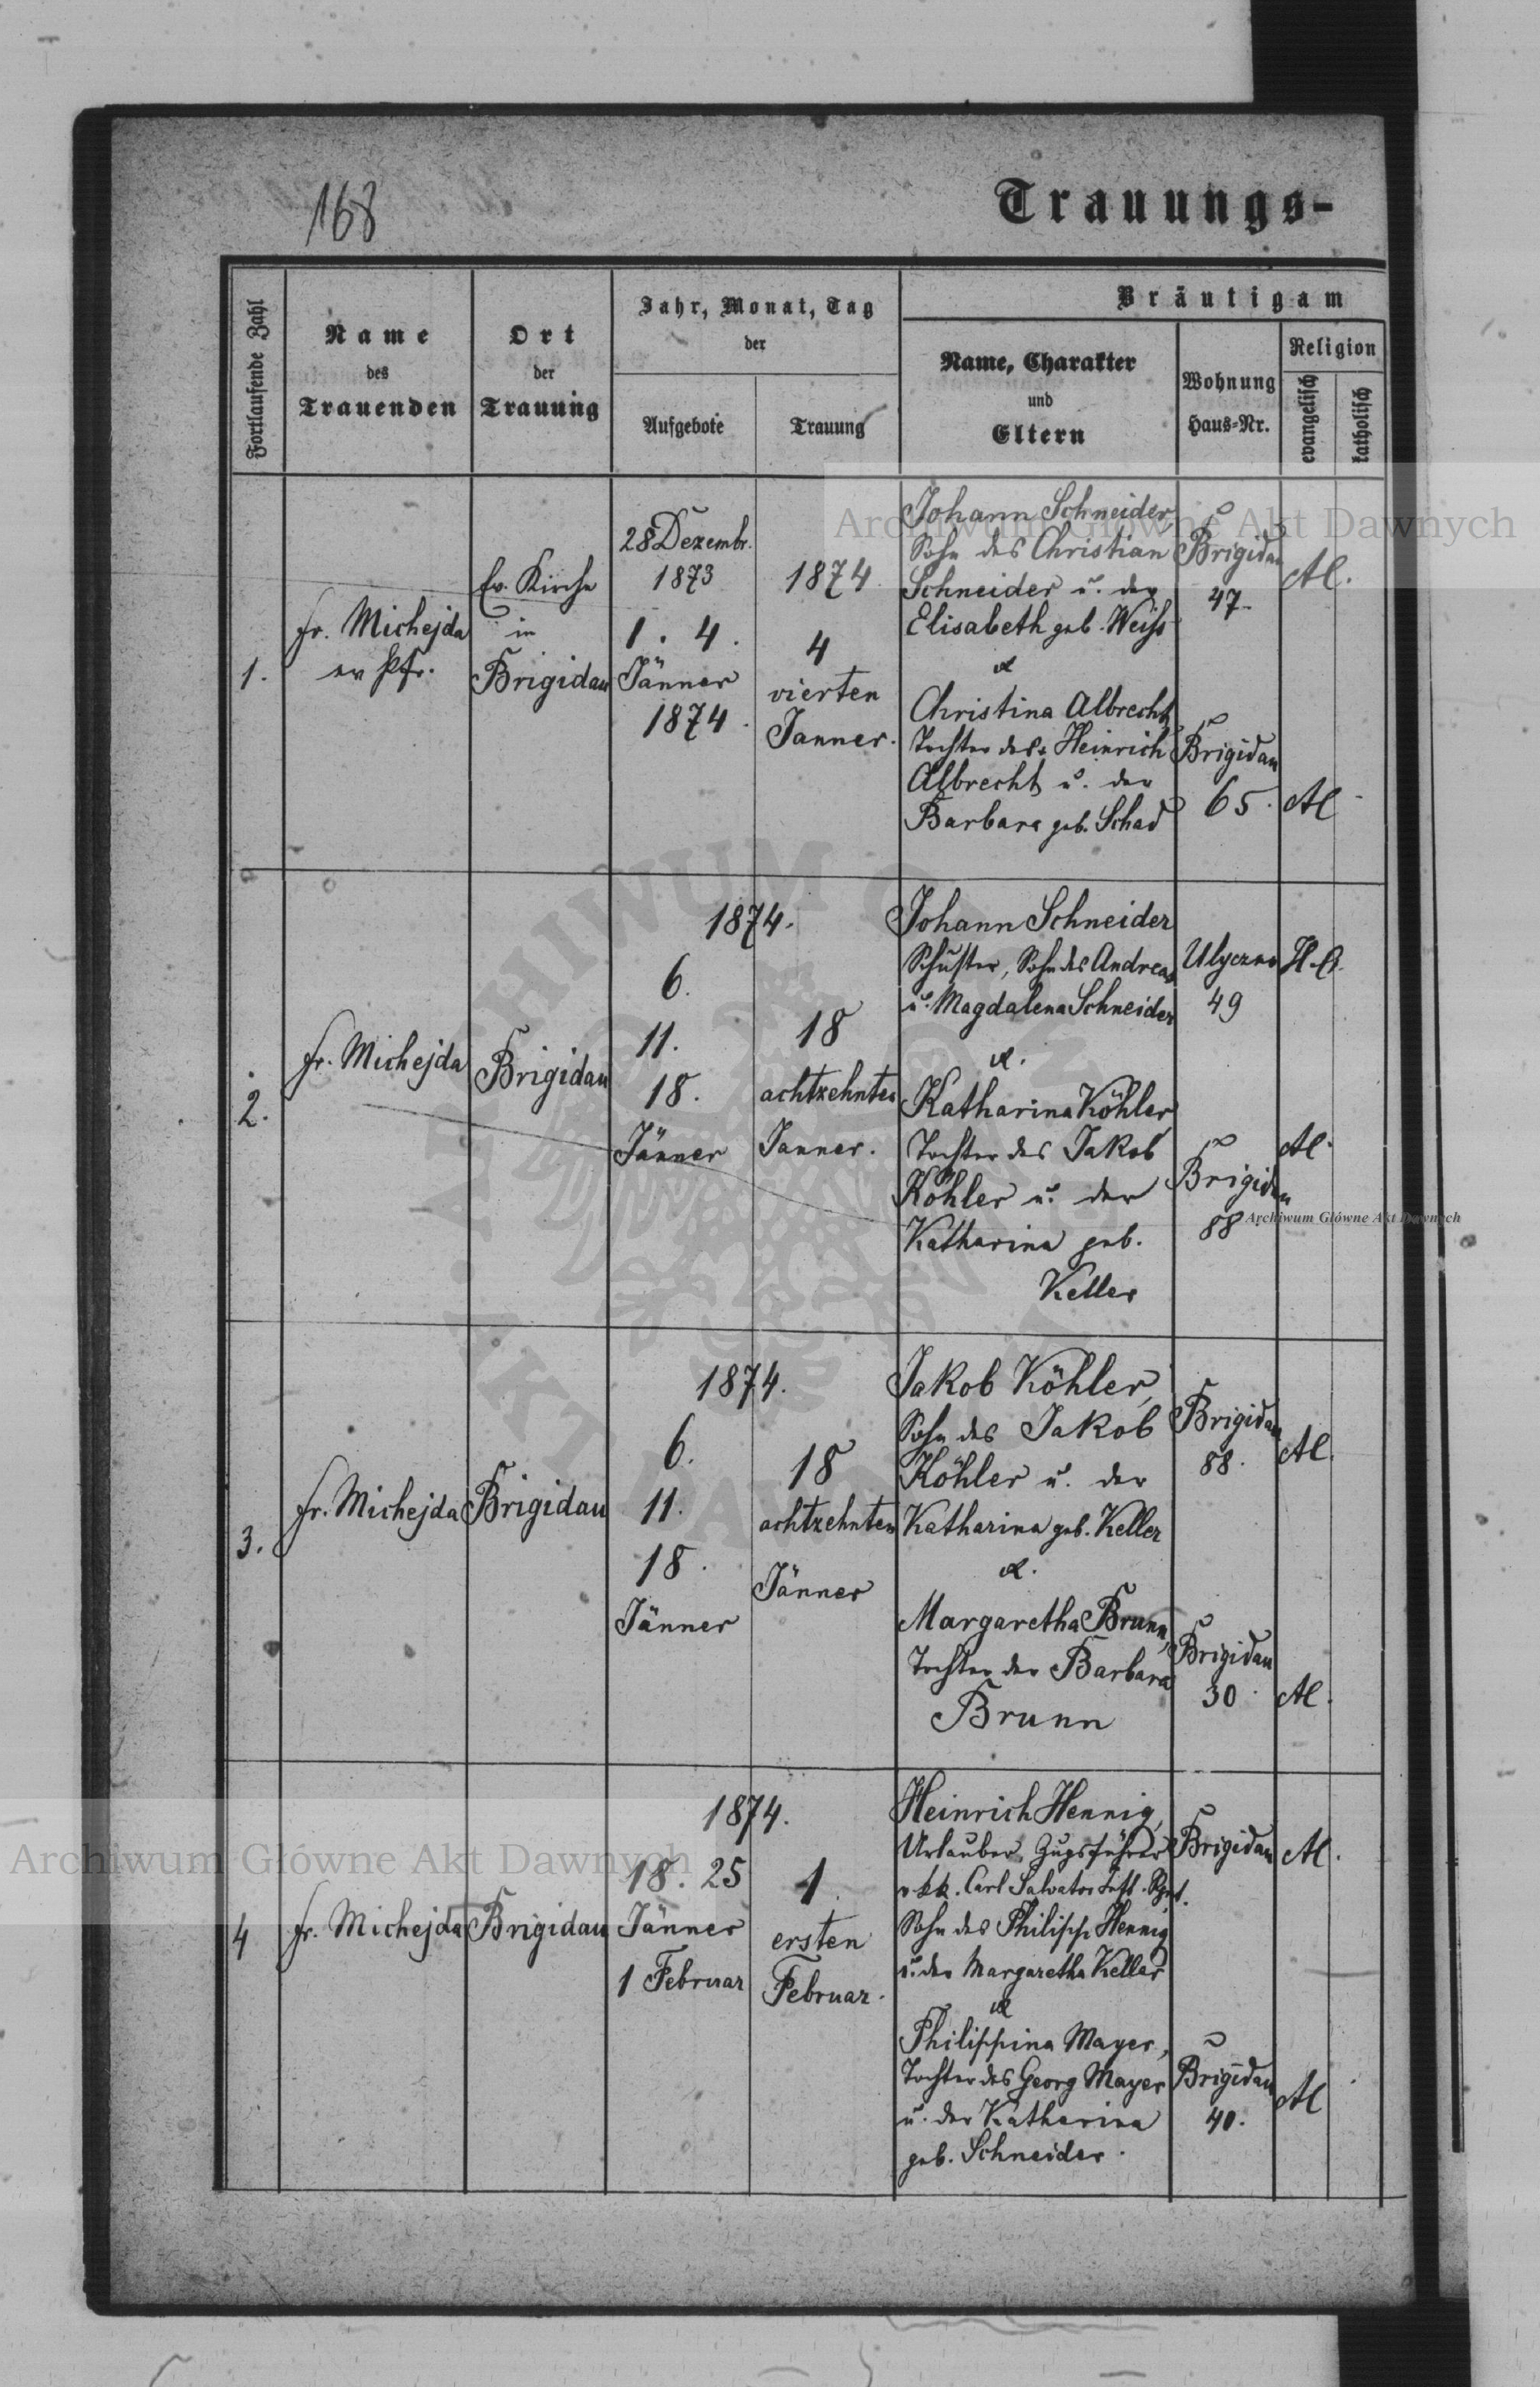 168
Trauungs-
Fortlaufende Zahl
Name
des
Trauenden
Ort
der
Trauung
Jahr, Monat, Tag
der
Aufgebote
Trauung
Bräutigam
Name, Charakter
und
Eltern
Wohnung
Haus-Nr.
Religion
evangelisch
katholisch
1.
fr. Michejda
ev Pfr.
Ev. Kirche
in
Brigidau
28 Dezembr.
1873
1. 4.
Jänner
1874.
1874
4
vierten
Janner.
Johann Schneider,
Sohn des Christian
Schneider u. der
Elisabeth geb. Weiß
&
Christina Albrecht,
Tochter des Heinrich
Albrecht u. der
Barbara geb. Schad
Brigidau
47.
Brigidau
65.
AC.
AC
2.
fr. Michejda
Brigidau
1874.
6.
11.
18.
Jänner
18
achtzehnten
Janner.
Johann Schneider
Schuster, Sohn des Andreas
u. Magdalena Schneider
&.
Katharina Köhler,
Tochter des Jakob
Köhler u. der
Katharina geb.
Keller
Ulyczno
49
Brigidau
88
H.C.
AC.
3.
fr. Michejda
Brigidau
1874.
6.
11.
18.
Jänner
18
achtzehnten
Jänner
Jakob Köhler,
Sohn des Jakob
Köhler u. der
Katharina geb. Keller
&.
Margaretha Brunn,
Tochter der Barbara
Brunn
Brigidau
88.
Brigidau
30.
AC.
AC.
4
fr. Michejda
Brigidau
1874.
18. 25
Jänner
1 Februar
1.
ersten
Februar.
Heinrich Hennig,
Urlauber, Zugsführer
v. kk. Carl Salvator Inft. Rgt.
Sohn des Philipp Hennig
u. der Margaretha Keller
&
Philippina Mayer,
Tochter des Georg Mayer
u. der Katharina
geb. Schneider.
Brigidau
Brigidau
40.
AC.
AC
Archiwum Główne Akt Dawnych
Archiwum Główne Akt Dawnych
Archiwum Główne Akt Dawnych